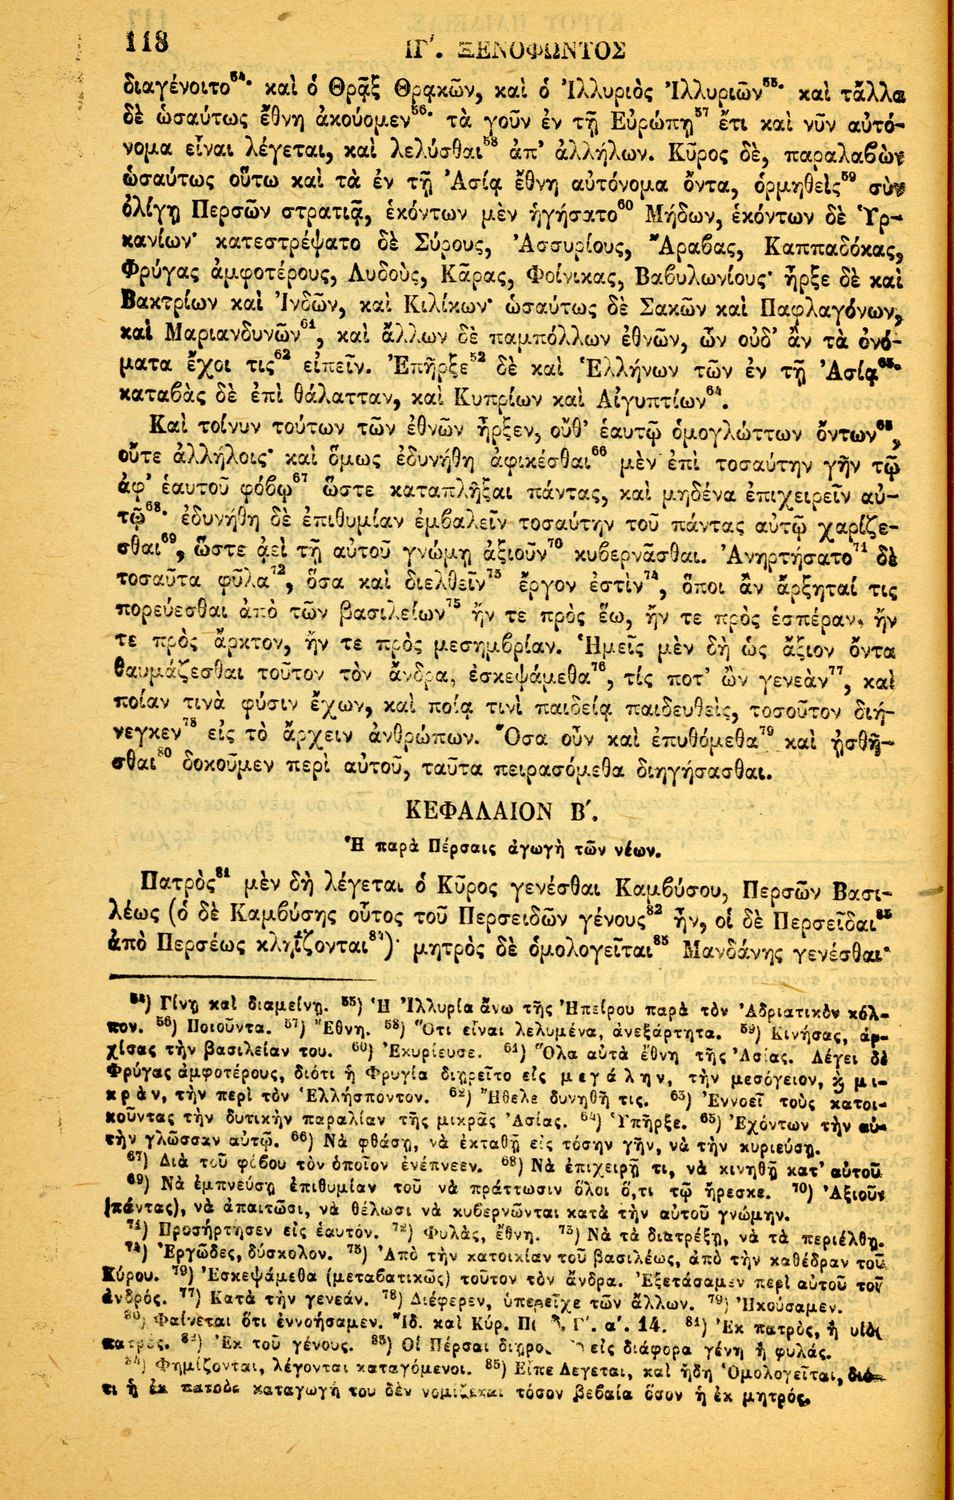 118
ΙΓ΄. ΞΕΝΟΦΩΝΤΟΣ
διαγένοιτο⁵⁴· καὶ ὁ Θρᾷξ Θρᾳκῶν, καὶ ὁ Ἰλλυριὸς Ἰλλυριῶν⁵⁵· καὶ τἄλλα
δὲ ὡσαύτως ἔθνη ἀκούομεν⁵⁶· τὰ γοῦν ἐν τῇ Εὐρώπῃ⁵⁷ ἔτι καὶ νῦν αὐτό-
νομα εἶναι λέγεται, καὶ λελύσθαι⁵⁸ ἀπ' ἀλλήλων. Κῦρος δέ, παραλαβὼν
ὡσαύτως οὕτω καὶ τὰ ἐν τῇ Ἀσίᾳ ἔθνη αὐτόνομα ὄντα, ὁρμηθεὶς⁵⁹ σὺν
ὀλίγῃ Περσῶν στρατιᾷ, ἑκόντων μὲν ἡγήσατο⁶⁰ Μήδων, ἑκόντων δὲ Ὑρ-
κανίων· κατεστρέψατο δὲ Σύρους, Ἀσσυρίους, Ἄραβας, Καππαδόκας,
Φρύγας ἀμφοτέρους, Λυδούς, Κᾶρας, Φοίνικας, Βαβυλωνίους· ἦρξε δὲ καὶ
Βακτρίων καὶ Ἰνδῶν, καὶ Κιλίκων· ὡσαύτως δὲ Σακῶν καὶ Παφλαγόνων,
καὶ Μαριανδυνῶν⁶¹, καὶ ἄλλων δὲ παμπόλλων ἐθνῶν, ὧν οὐδ' ἂν τὰ ὀνό-
ματα ἔχοι τις⁶² εἰπεῖν. Ἐπῆρξε⁵² δὲ καὶ Ἑλλήνων τῶν ἐν τῇ Ἀσίᾳ⁶³·
καταβὰς δὲ ἐπὶ θάλατταν, καὶ Κυπρίων καὶ Αἰγυπτίων⁶⁴.
Καὶ τοίνυν τούτων τῶν ἐθνῶν ἦρξεν, οὔθ' ἑαυτῷ ὁμογλώττων ὄντων⁶⁵,
οὔτε ἀλλήλοις· καὶ ὅμως ἐδυνήθη ἀφικέσθαι⁶⁶ μὲν ἐπὶ τοσαύτην γῆν τῷ
ἀφ' ἑαυτοῦ φόβῳ⁶⁷ ὥστε καταπλῆξαι πάντας, καὶ μηδένα ἐπιχειρεῖν αὐ-
τῷ⁶⁸· ἐδυνήθη δὲ ἐπιθυμίαν ἐμβαλεῖν τοσαύτην τοῦ πάντας αὐτῷ χαρίζε-
σθαι⁶⁹, ὥστε ἀεὶ τῇ αὐτοῦ γνώμῃ ἀξιοῦν⁷⁰ κυβερνᾶσθαι. Ἀνηρτήσατο⁷¹ δὲ
τοσαῦτα φῦλα⁷², ὅσα καὶ διελθεῖν⁷³ ἔργον ἐστίν⁷⁴, ὅποι ἂν ἄρξηταί τις
πορεύεσθαι ἀπὸ τῶν βασιλείων⁷⁵ ἤν τε πρὸς ἕω, ἤν τε πρὸς ἑσπέραν, ἤν
τε πρὸς ἄρκτον, ἤν τε πρὸς μεσημβρίαν. Ἡμεῖς μὲν δὴ ὡς ἄξιον ὄντα
θαυμάζεσθαι τοῦτον τὸν ἄνδρα, ἐσκεψάμεθα⁷⁶, τίς ποτ' ὢν γενεάν⁷⁷, καὶ
ποίαν τινὰ φύσιν ἔχων, καὶ ποίᾳ τινὶ παιδείᾳ παιδευθείς, τοσοῦτον διή-
νεγκεν⁷⁸ εἰς τὸ ἄρχειν ἀνθρώπων. Ὅσα οὖν καὶ ἐπυθόμεθα⁷⁹ καὶ ᾐσθῆ-
σθαι⁸⁰ δοκοῦμεν περὶ αὐτοῦ, ταῦτα πειρασόμεθα διηγήσασθαι.
ΚΕΦΑΛΑΙΟΝ Β΄.
Ἡ παρὰ Πέρσαις ἀγωγὴ τῶν νέων.
Πατρὸς⁸¹ μὲν δὴ λέγεται ὁ Κῦρος γενέσθαι Καμβύσου, Περσῶν Βασι-
λέως (ὁ δὲ Καμβύσης οὗτος τοῦ Περσειδῶν γένους⁸² ἦν, οἱ δὲ Περσεῖδαι⁸³
ἀπὸ Περσέως κληΐζονται⁸⁴)· μητρὸς δὲ ὁμολογεῖται⁸⁵ Μανδάνης γενέσθαι·
⁵⁴) Γίνῃ καὶ διαμείνῃ. ⁵⁵) Ἡ Ἰλλυρία ἄνω τῆς Ἠπείρου παρὰ τὸν Ἀδριατικὸν κόλ-
πον. ⁵⁶) Ποιοῦντα. ⁵⁷) Ἔθνη. ⁵⁸) Ὅτι εἶναι λελυμένα, ἀνεξάρτητα. ⁵⁹) Κινήσας, ἀρ-
χίσας τὴν βασιλείαν του. ⁶⁰) Ἐκυρίευσε. ⁶¹) Ὅλα αὐτὰ ἔθνη τῆς Ἀσίας. Λέγει δὲ
Φρύγας ἀμφοτέρους, διότι ἡ Φρυγία διῃρεῖτο εἰς μεγάλην, τὴν μεσόγειον, ϗ μι-
κράν, τὴν περὶ τὸν Ἑλλήσποντον. ⁶²) Ἤθελε δυνηθῆ τις. ⁶³) Ἐννοεῖ τοὺς κατοι-
κοῦντας τὴν δυτικὴν παραλίαν τῆς μικρᾶς Ἀσίας. ⁶⁴) Ὑπῆρξε. ⁶⁵) Ἐχόντων τὴν αὐ-
τὴν γλῶσσαν αὐτῷ. ⁶⁶) Νὰ φθάσῃ, νὰ ἐκταθῇ εἰς τόσην γῆν, νὰ τὴν κυριεύσῃ.
⁶⁷) Διὰ τοῦ φόβου τὸν ὁποῖον ἐνέπνεεν. ⁶⁸) Νὰ ἐπιχειρῇ τι, νὰ κινηθῇ κατ' αὐτοῦ
⁶⁹) Νὰ ἐμπνεύσῃ ἐπιθυμίαν τοῦ νὰ πράττωσιν ὅλοι ὅ,τι τῷ ἤρεσκε. ⁷⁰) Ἀξιοῦν
(πάντας), νὰ ἀπαιτῶσι, νὰ θέλωσι νὰ κυβερνῶνται κατὰ τὴν αὐτοῦ γνώμην.
⁷¹) Προσήρτησεν εἰς ἑαυτόν. ⁷²) Φυλάς, ἔθνη. ⁷³) Νὰ τὰ διατρέξῃ, νὰ τὰ περιέλθῃ.
⁷⁴) Ἐργῶδες, δύσκολον. ⁷⁵) Ἀπὸ τὴν κατοικίαν τοῦ βασιλέως, ἀπὸ τὴν καθέδραν τοῦ
Κύρου. ⁷⁶) Ἐσκεψάμεθα (μεταβατικῶς) τοῦτον τὸν ἄνδρα. Ἐξετάσαμεν περὶ αὐτοῦ τοῦ
ἀνδρός. ⁷⁷) Κατὰ τὴν γενεάν. ⁷⁸) Διέφερεν, ὑπερεῖχε τῶν ἄλλων. ⁷⁹) Ἠκούσαμεν.
⁸⁰) Φαίνεται ὅτι ἐννοήσαμεν. Ἴδ. καὶ Κύρ. Γ΄. α΄. 14. ⁸¹) Ἐκ πατρός, ἢ υἱὸς
πατρός. ⁸²) Ἐκ τοῦ γένους. ⁸³) Οἱ Πέρσαι εἰς διάφορα γένη ἢ φυλάς.
⁸⁴) Φημίζονται, λέγονται καταγόμενοι. ⁸⁵) Εἶπε Λέγεται, καὶ ἤδη Ὁμολογεῖται, διό-
τι ἡ ἐκ πατρὸς καταγωγή του δὲν νομίζεται τόσον βεβαία ὅσον ἡ ἐκ μητρός.